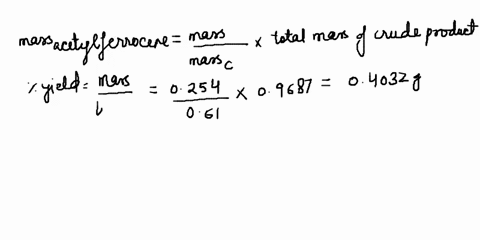 mass acetylferrocene = mass / mass c × total mass of crude product
% yield = mass / L = 0.254 / 0.61 × 0.9687 = 0.4032 g